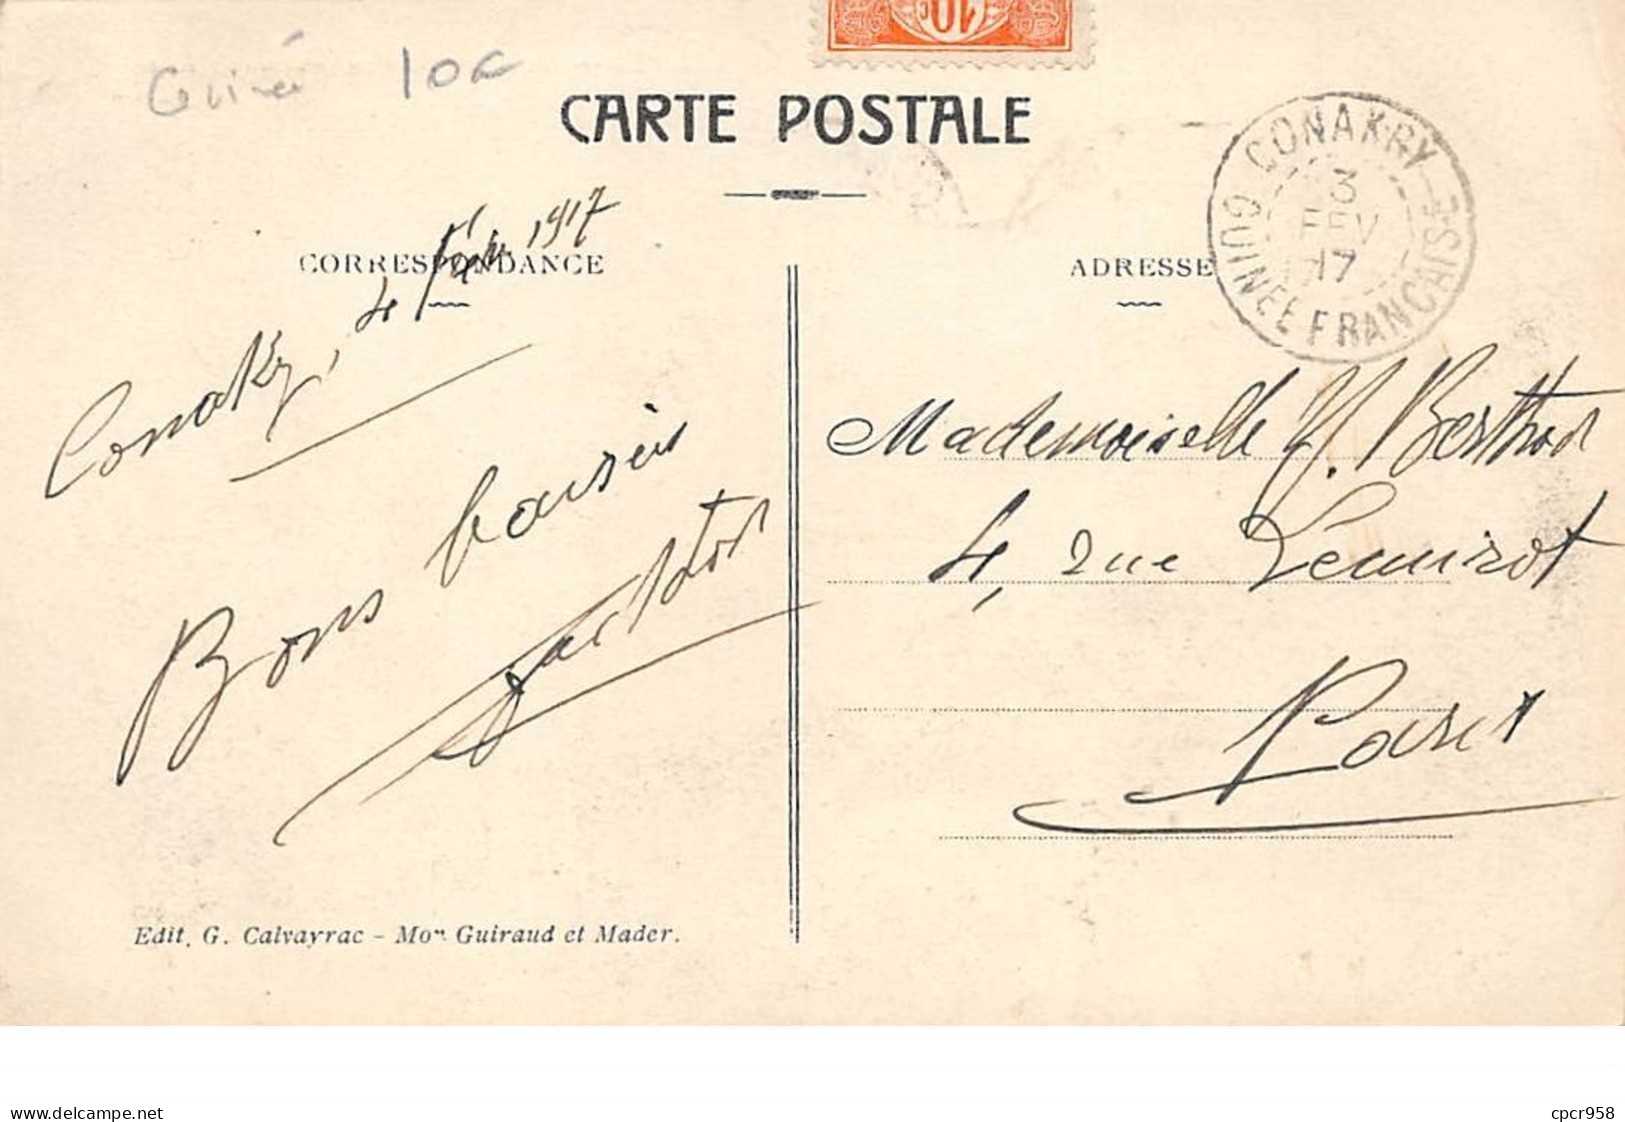 Guinée 10c
CARTE POSTALE
CONAKRY
3
FEV
17
GUINEE FRANCAISE
CORRESPONDANCE
ADRESSE
Conakry, 4 1917
Bons baisers
Mademoiselle Y. Berthod
4, rue
Paris
Edit. G. Calvayrac - Mon Guiraud et Mader.
www.delcampe.net
cpcr958